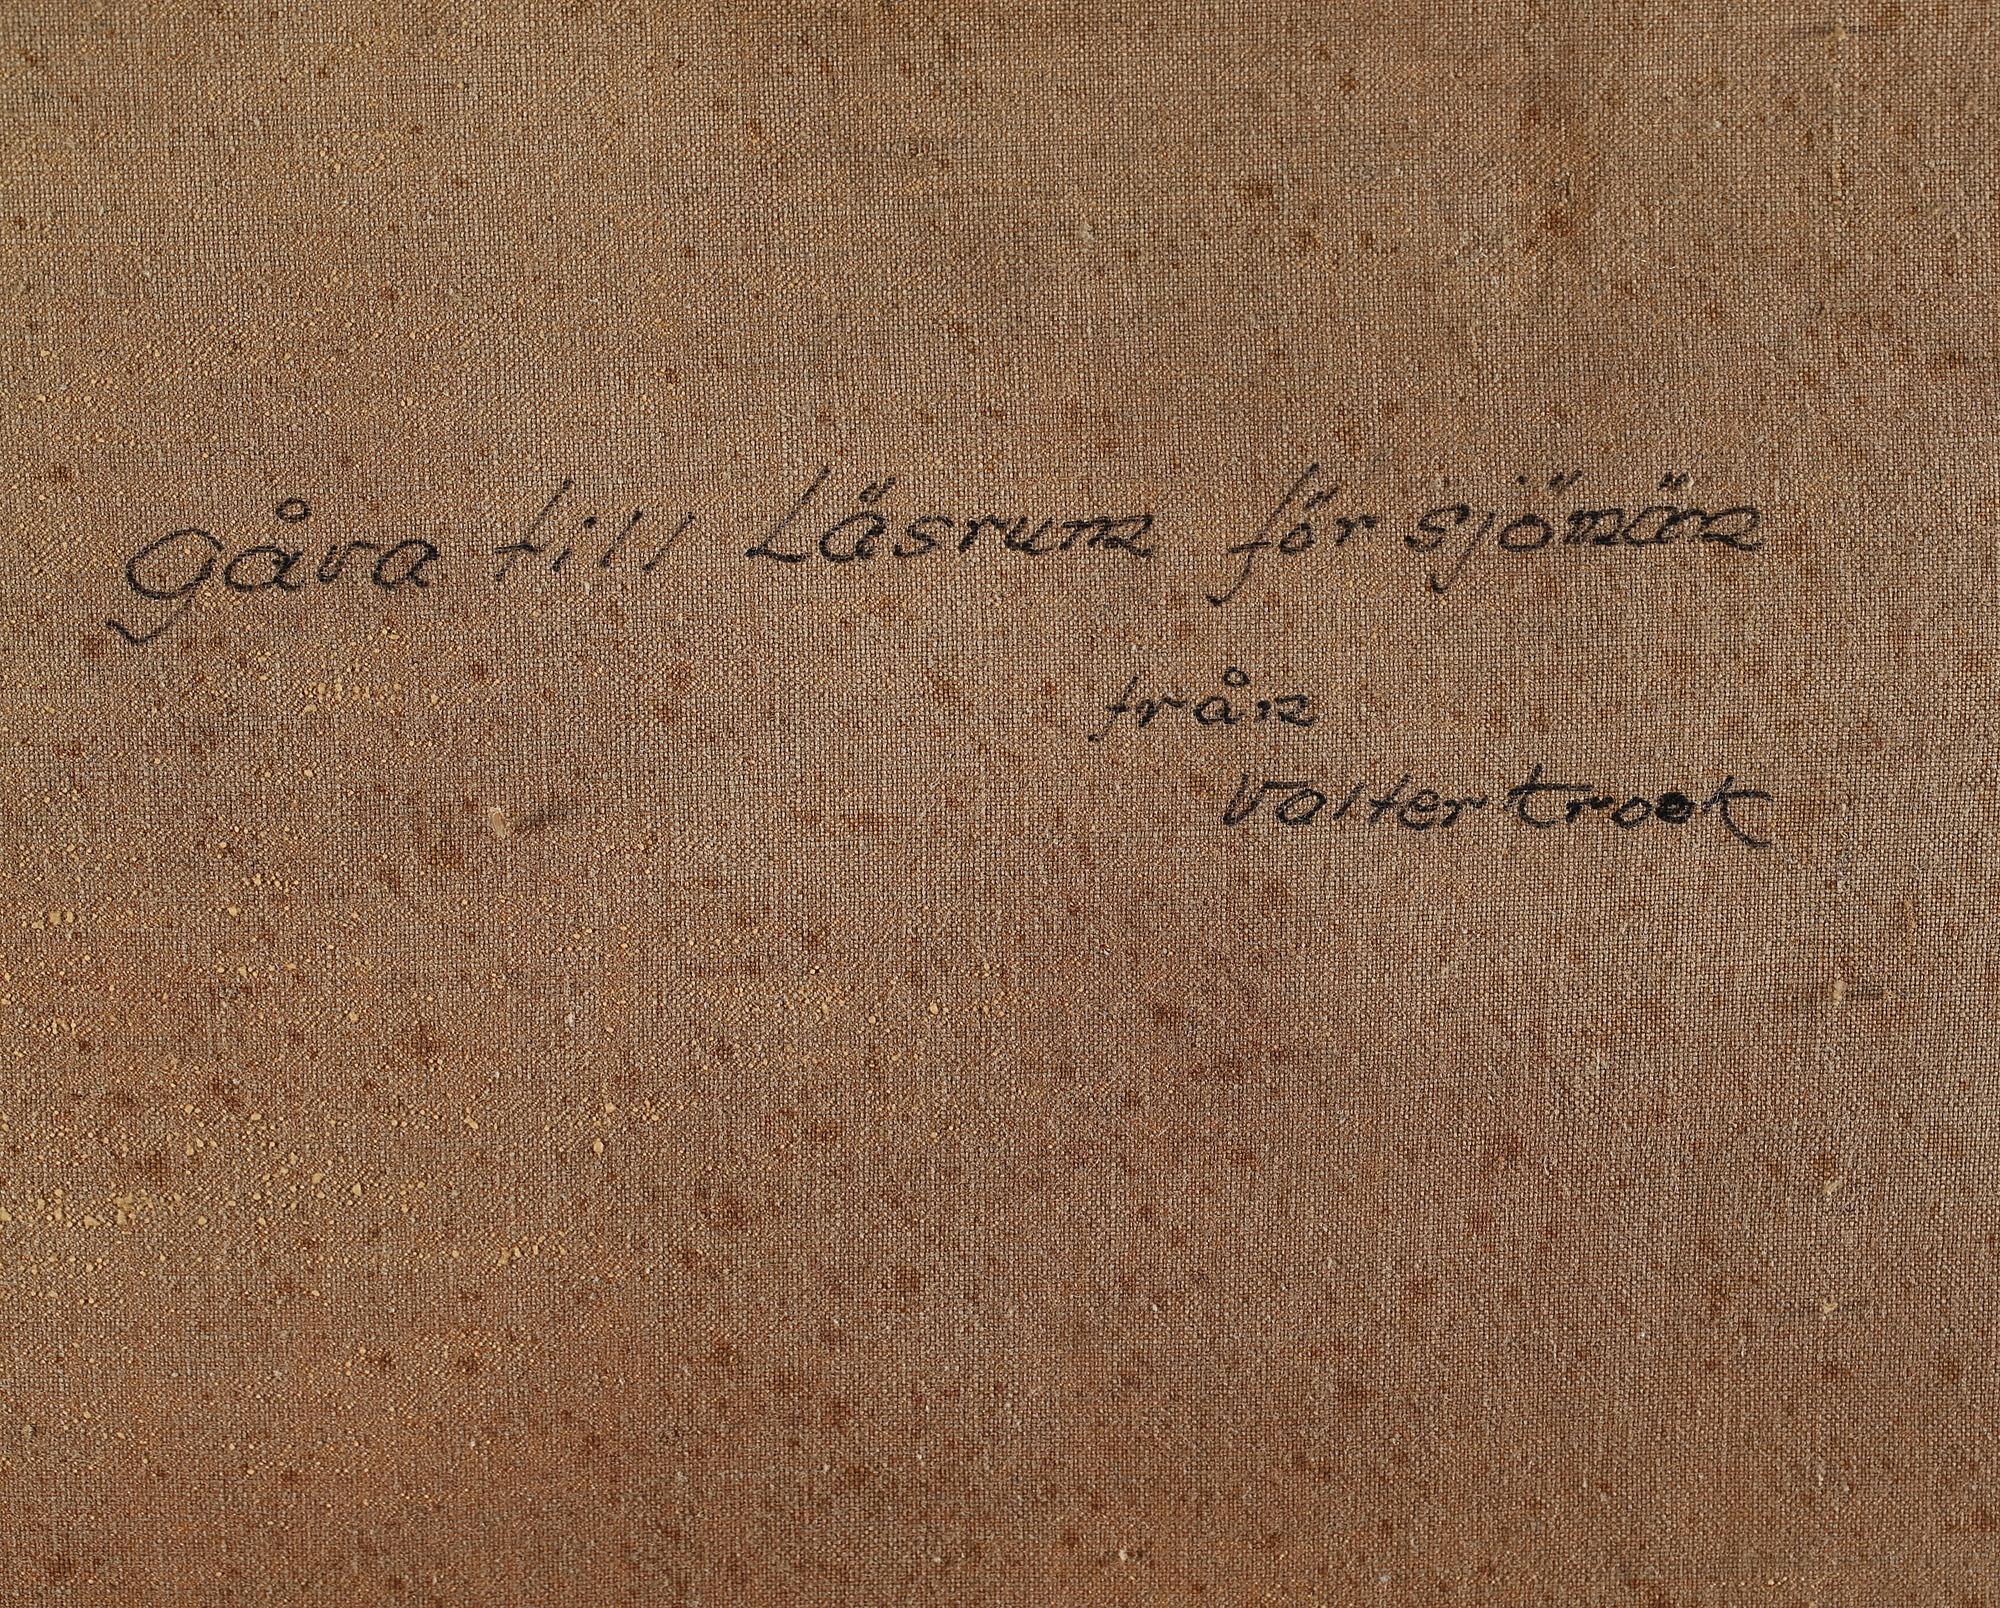 Gåva till Läsrum för sjömän
från
Valter